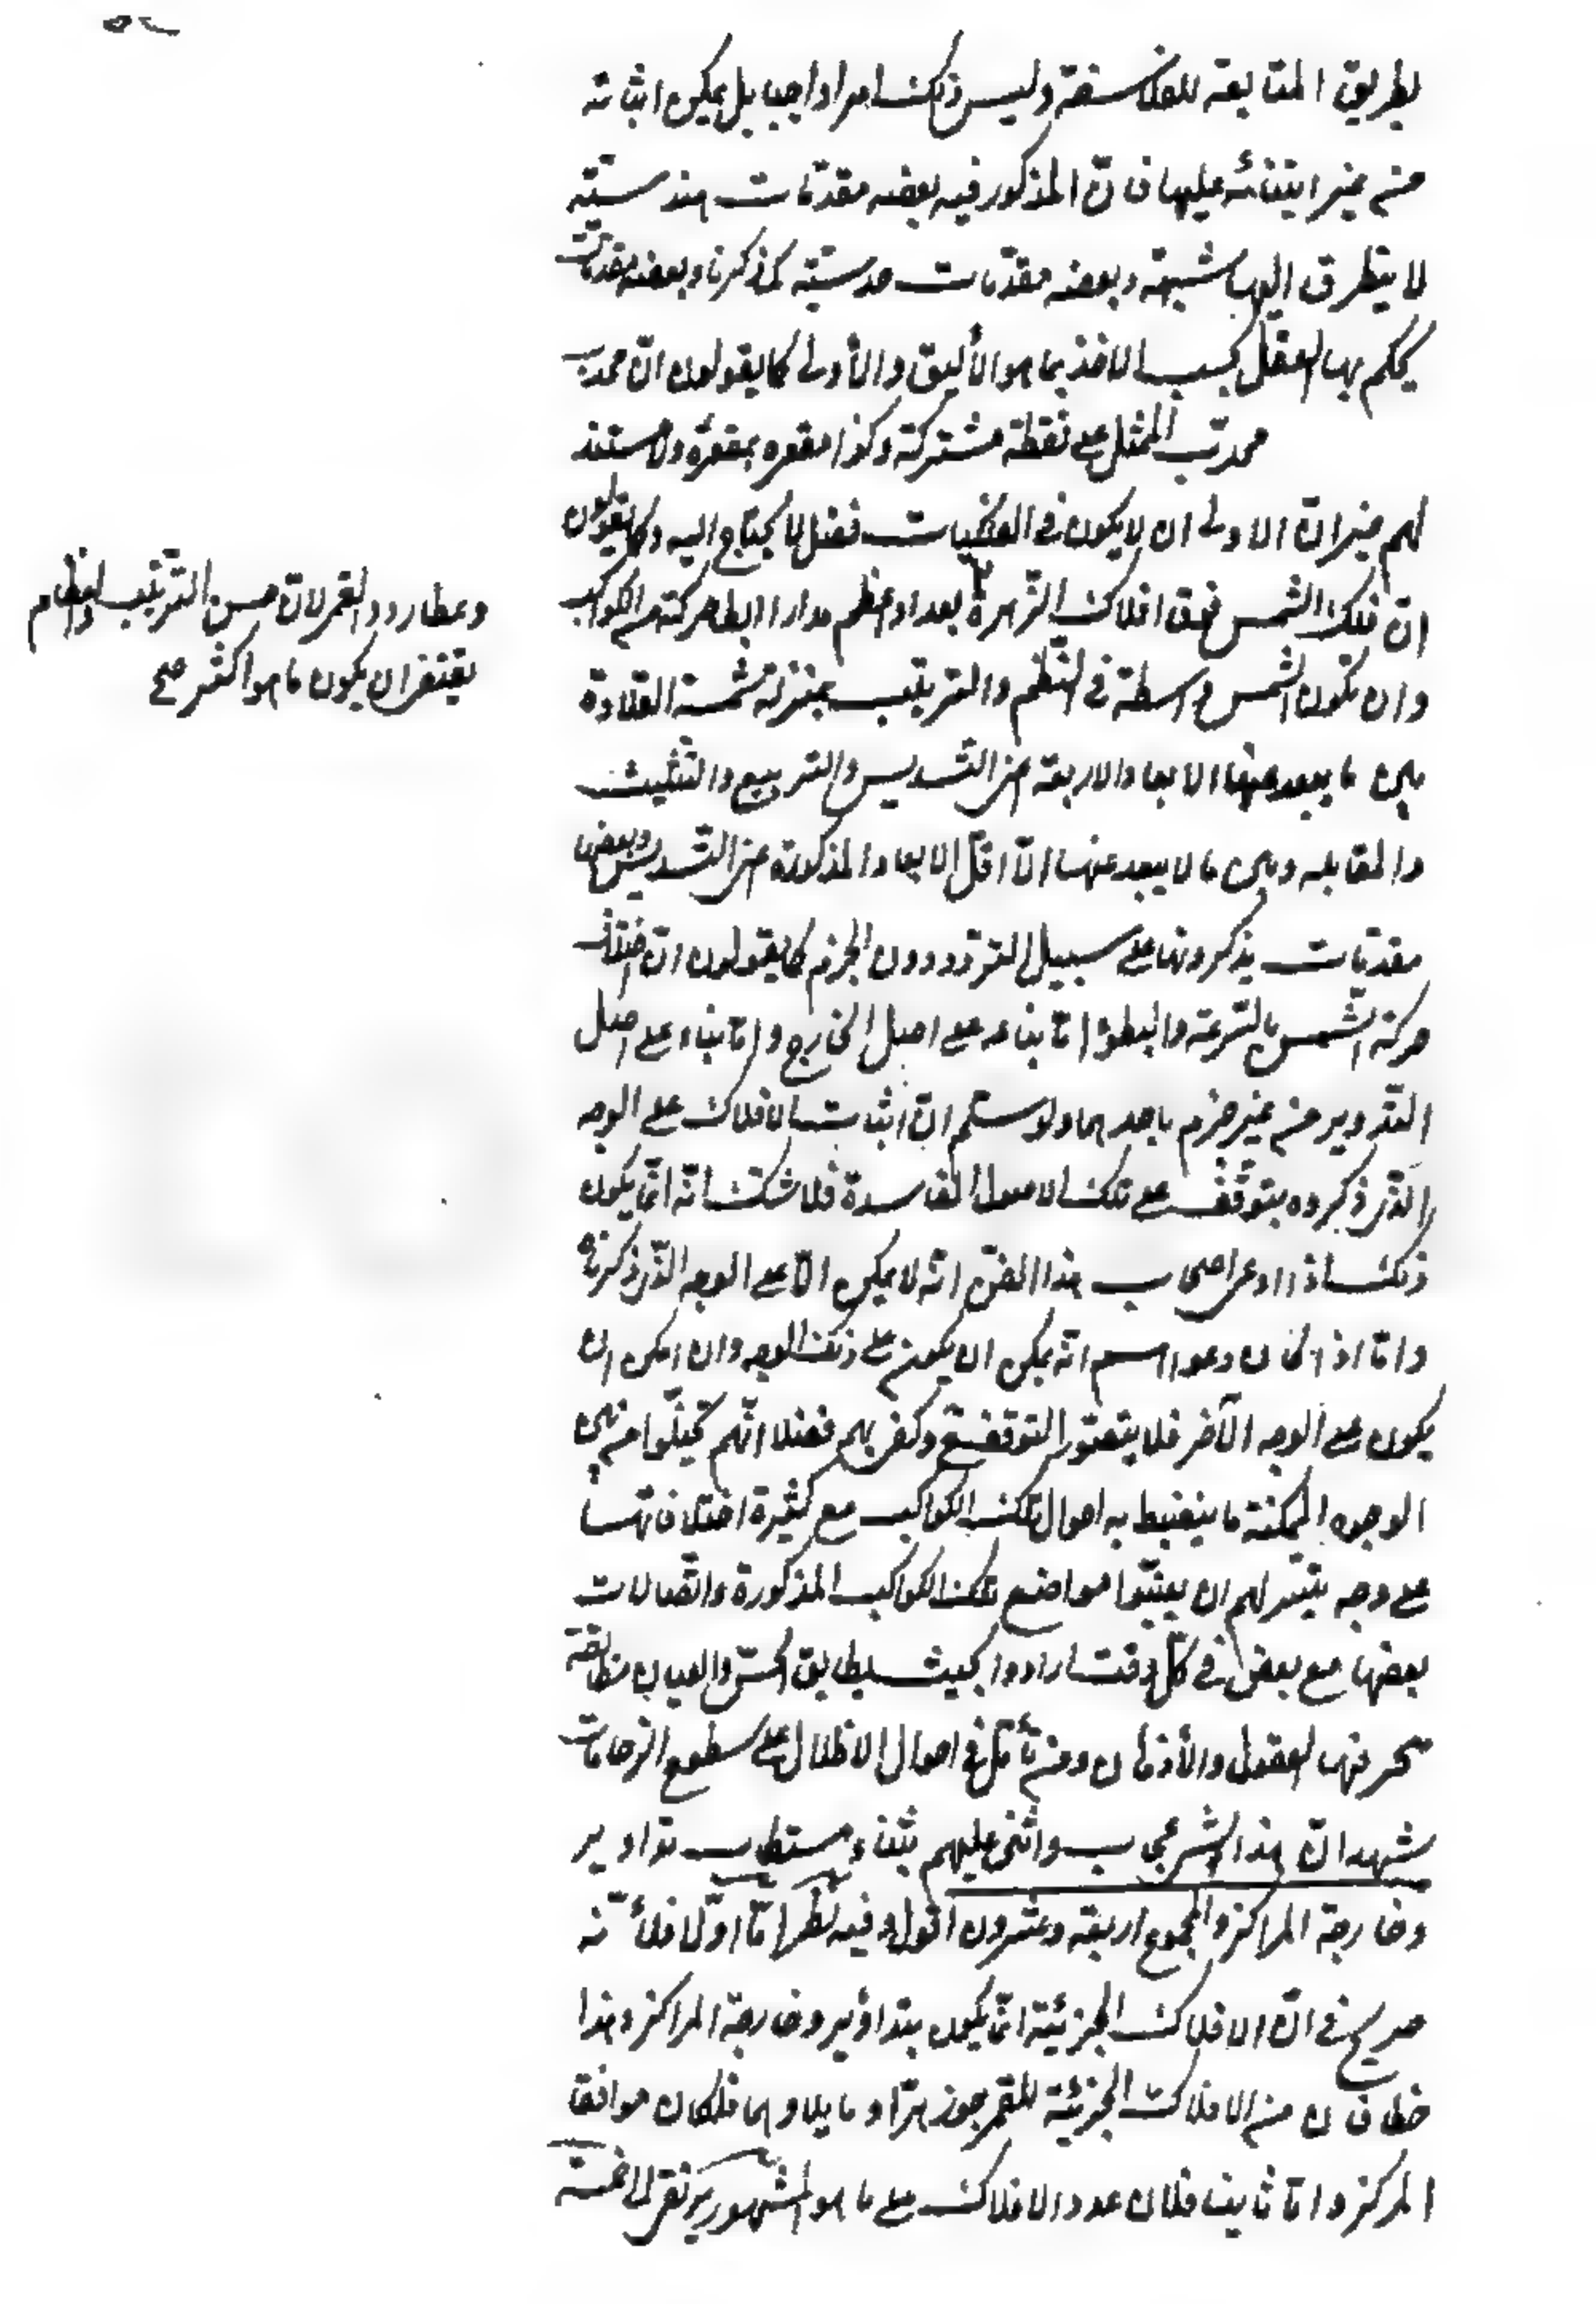 بطريق المتابعة للفلاسفة وليس ذلك امرا واجبا بل يمكن اثباته
من غير ابتنائه عليها فانّ المذكور فيه بعضه مقدّمات هندسيّة
لا يتطرق اليها شبهة وبعضه مقدّمات حدسيّة كما ذكرنا وبعضه مقدمات
يحكم بها العقل بحسب الاخذ بما هو الأليق والأولى كما يقولون انّ محدب
محدّب الممثل على نقطة مشتركة وكذا مقعره بمقعّره ولا مستند
لهم غير انّ الاولى ان لا يكون في الفلكيات فضل لا يحتاج اليه وكما يقولون
انّ فلك الشمس فوق افلاك الزّهرة بعدا واعظم مدارا ابطا حركة من الكواكب
وان تكون الشمس واسطة في النّظم والترتيب بمنزلة شمسة القلادة
بين ما يبعد عنها الابعاد الاربعة اعنى التّسديس والتربيع والتثليث
والمقابله وبين ما لا يبعد عنها انّ اقل الابعاد المذكورة اعنى التّسديس وبعضها
مقدّمات يذكرونها على سبيل التردّد دون الجزم كما يقولون انّ اختلاف
حركة الشّمس بالسّرعة والبطؤ امّا بناء على اصل الخارج وامّا بناء على اصل
التّدوير من غير جزم باحدهما ولو سلّم انّ اثبات الافلاك على الوجه
الّذى ذكروه يتوقّف على تلك الاصول الفاسدة فلا شك انّه انّما يكون
ذلك اذا ادعى اصحاب هذا الفنّ انّه لا يمكن الّا على الوجه الّذى ذكرناه
وامّا اذا كان دعواهم انّه يمكن ان يكون على ذلك الوجه وان امكن ان
يكون على الوجه الآخر فلا يتصوّر التوقف ح وكفى بهم فضلا انّهم تخيّلوا من بين
الوجوه الممكنة ما ينضبط به احوال تلك الكواكب مع كثيرة اختلافاتها
على وجه يتيسّر لهم ان يعيّنوا مواضع تلك الكواكب المذكورة واتّصالات
بعضها مع بعض في كلّ وقت ارادوا بحيث يطابق الحسّ والعيان مطابقة
تتحير فيها العقول والأذهان ومن تأمّل في احوال الاظلال على سطوح الرخامات
شهد انّ هذا لشئ عجاب واثنى عليهم بثناء مستطاب تداوير
وخارجة المراكز والمجموع اربعة وعشرون اقول وفيه نظر امّا اوّلا فلأنّه
صريح في انّ الافلاك الجزئيّة انّما يكون بتداوير وخارجة المراكز وهذا
خطا فان من الافلاك الجزئيّة للقمر جوزهرّا ومايلا وهما فلكان موافقا
المركز وامّا ثانيا فلان عدد الافلاك على ما هو المشهور يرتقى الى خمسة
وعطارد والقمر لانّ حسن الترتيب والنظام
يقتضى ان يكون ما هو اكثر صح